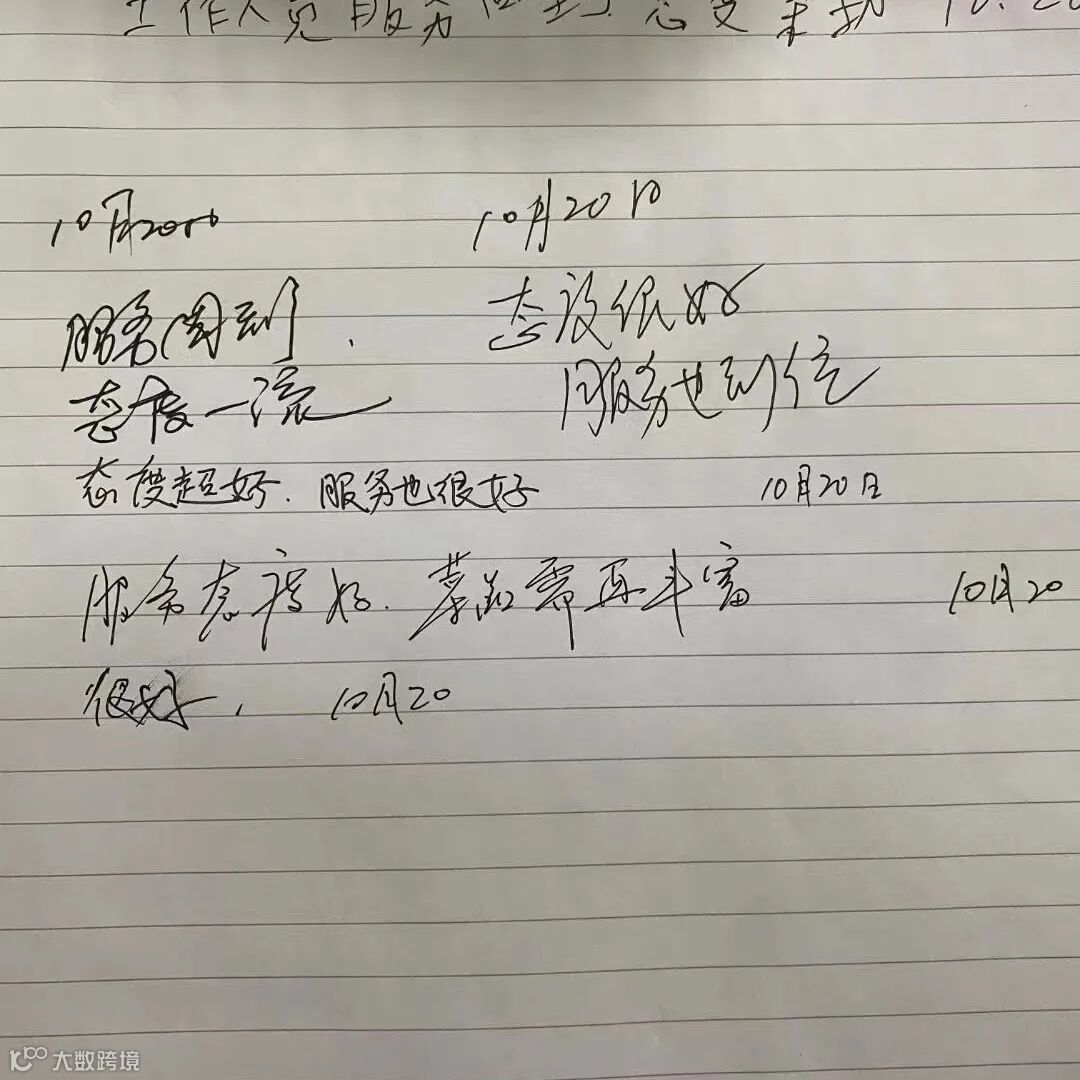 工作人员服务周到 态度 10.20
10月20日
10月20日
服务周到.
态度一流
态度很好
服务也到位
态度超好.服务也很好 10月20日
服务态度好.菜品需再丰富 10月20
很好. 10月20
大数跨境